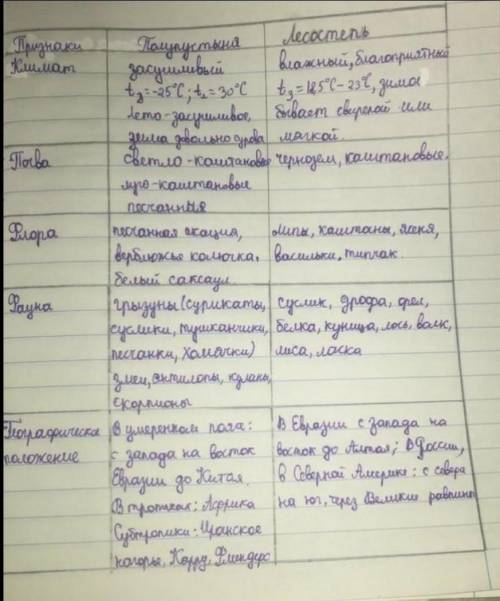 Признаки Полупустыня Лесостепь
Климат засушливый влажный, благоприятный
tз=-25°С; tл=30°С tз=18,5°С-23°С, зима
Лето-засушливое, бывает свирепой или
зима довольно сурова мягкой.
Почва светло-каштановые черноzём, каштановые.
-каштановые
песчанный
Флора песчанная акация, липы, каштаны, ясеня,
верблюжье колючка, васильки, типчак.
белый саксаул.
Фауна грызуны (сурикаты, суслик, дрофа, орел,
суслики, тушканчики, белка, куница, лось, волк,
песчанки, хомячки) лиса, ласка
змеи, антилопы, куланы,
скорпионы
Географическое В умеренном поясе: В Евразии с запада на
положение с запада на восток восток до Алтая; В России,
Евразии до Китая. в Северной Америке: с севера
В тропиках: Африка на юг, через Великие равнины
Субтропики: Иранское
нагорье, Карру, Флиндерс